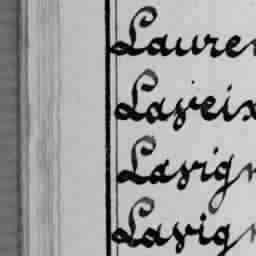 Lauren
Laveix
Lavign
Lavign